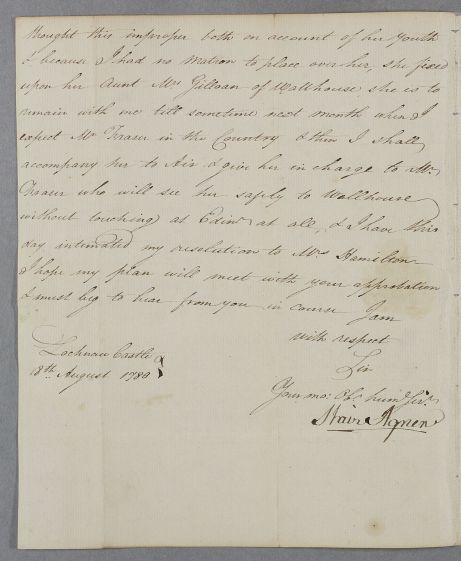 thought this improper both on account of her youth
& because I had no Matron to place over her, she fixed
upon her Aunt Mrs Gilloan of Wallhouse she is to
remain with me till sometime next month when I
expect Mr Fraser in the Country & then I shall
accompany her to Air & give her in charge to Mr
Fraser who will see her safely to Wallhouse
without touching at Edinr at all, & I have this
day intimated my resolution to Mrs Hamilton
I hope my plan will meet with your approbation
& must beg to hear from you in course I am
with respect
Sir
Your mo: Obt humle Sert
Stair Agnew
Lochnaw Castle
18th August 1789